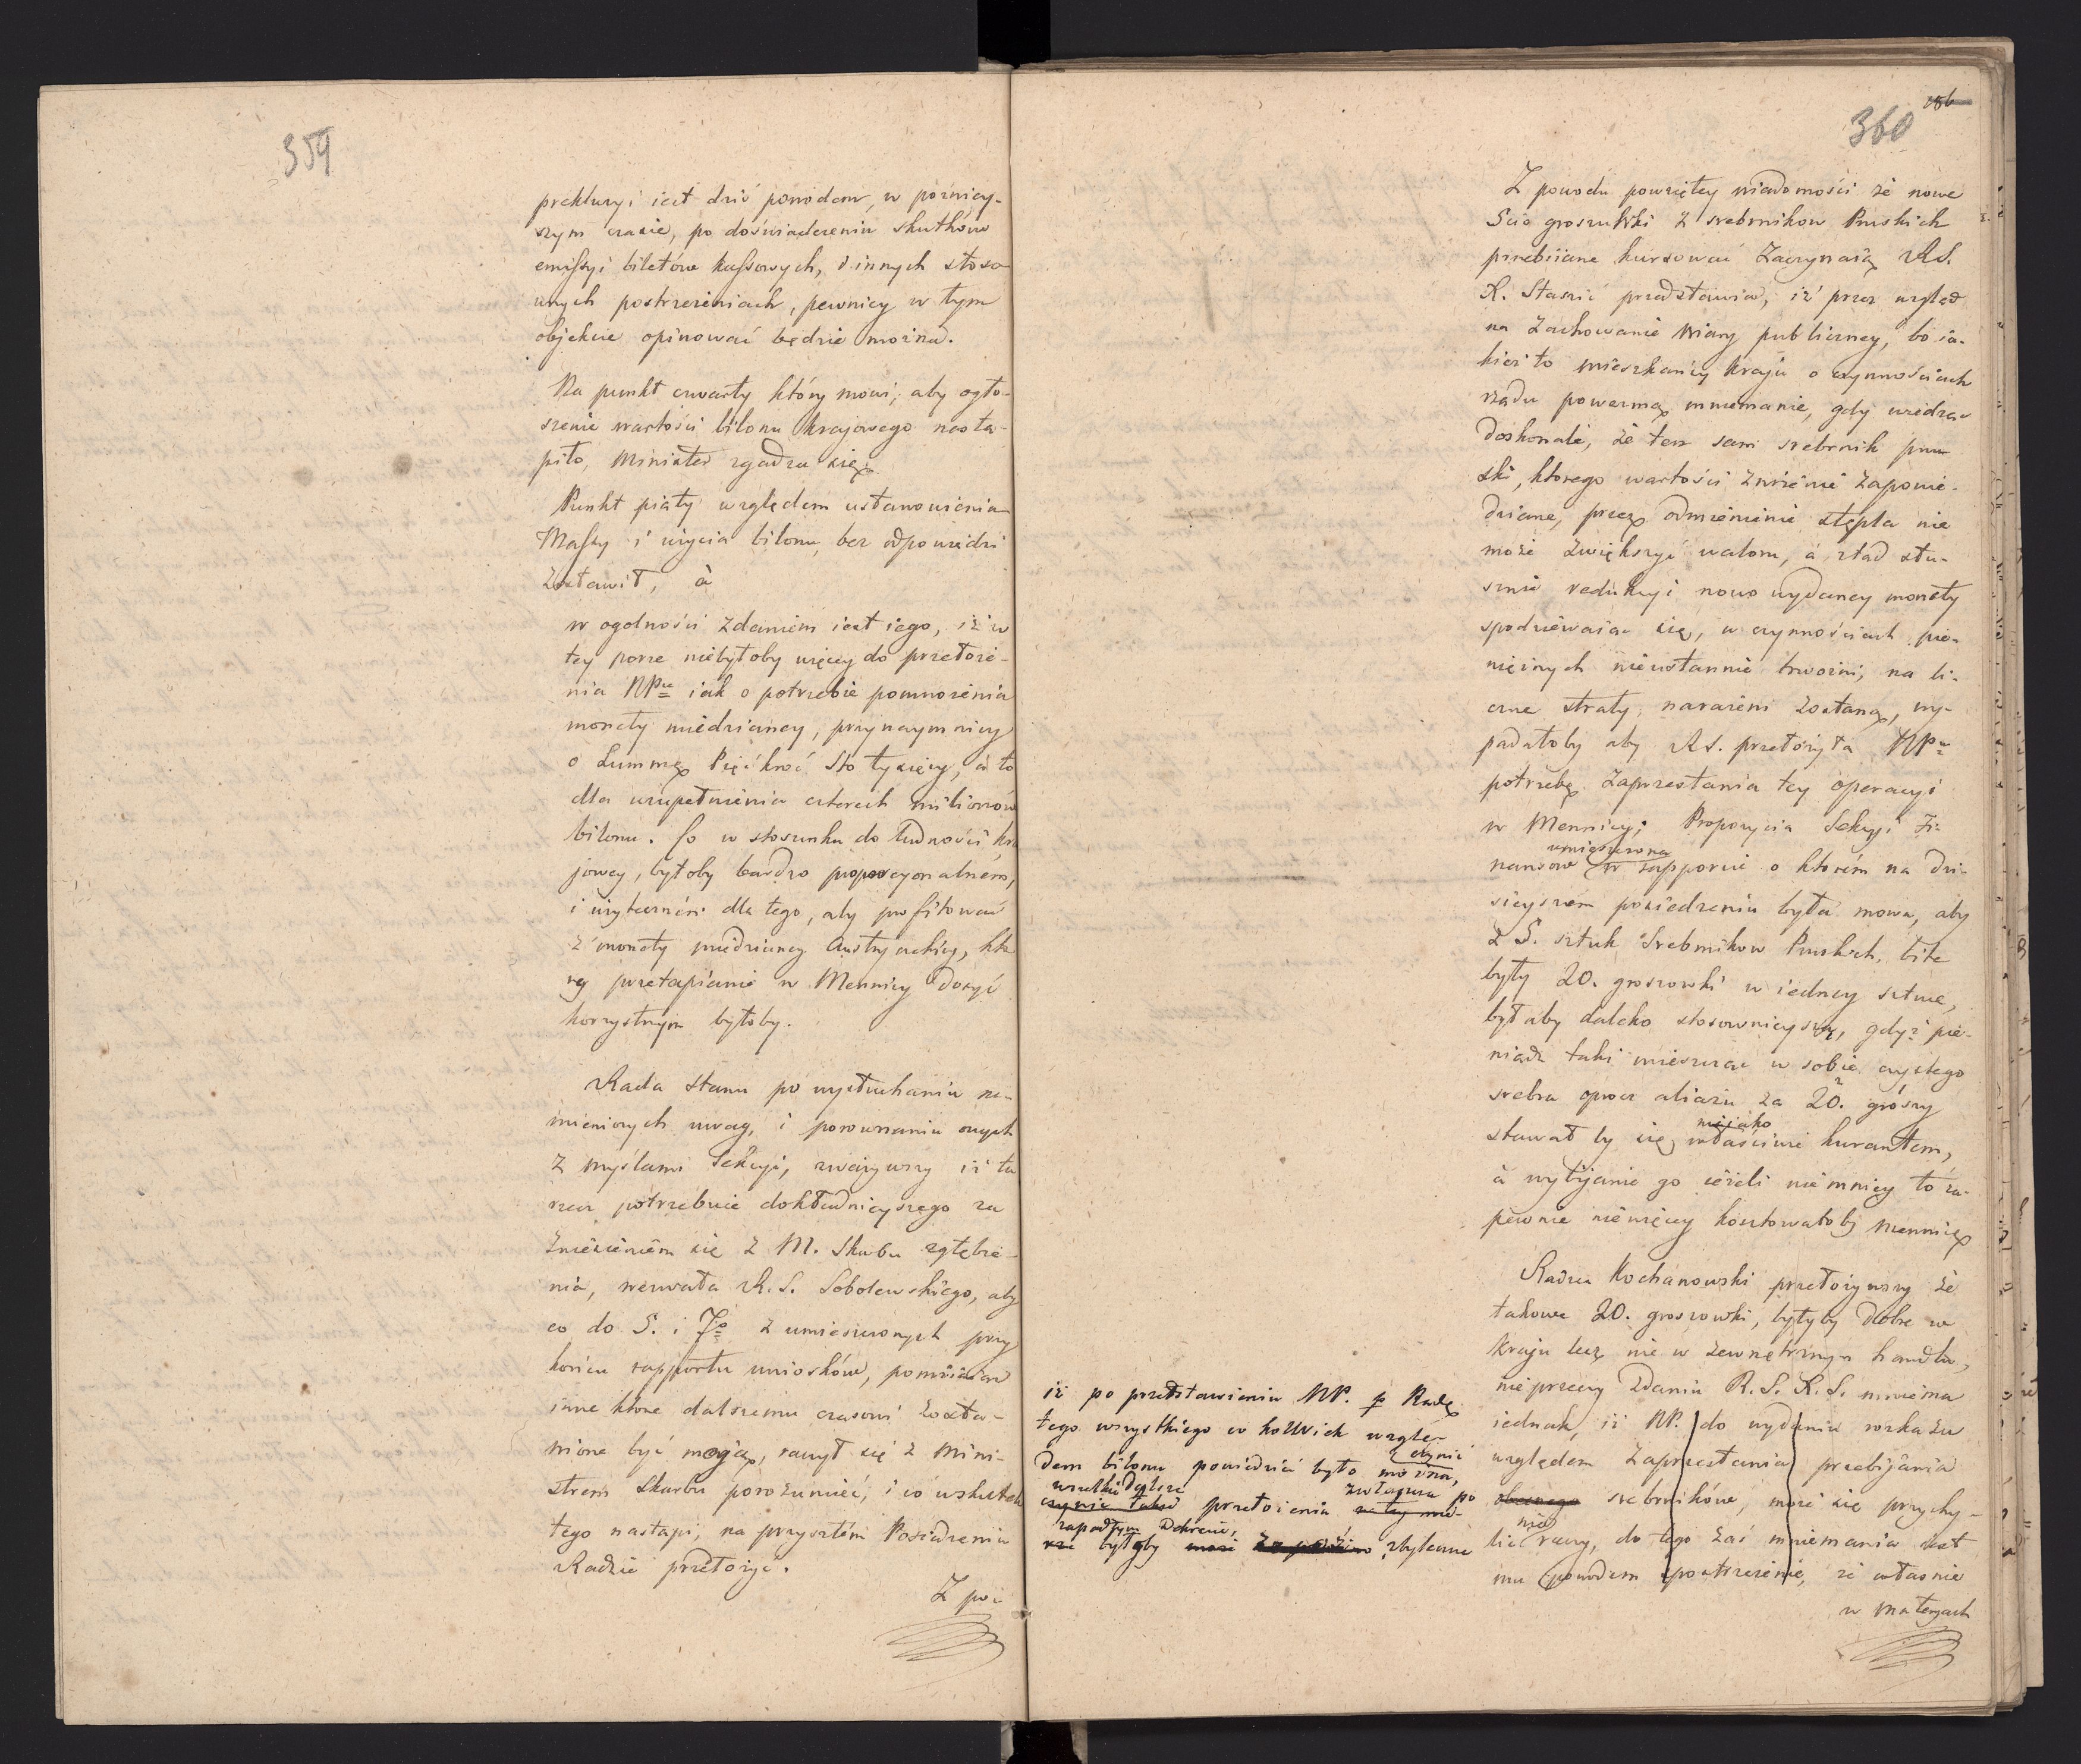 359
preklunyi iest dziś powodem, w pozniey-
szym czasie, po doświadczeniu skutków
emissyi biletów kassowych, i innych stoso-
wnych postrzeżeniach, pewniey w tym
objekcie opinować będzie można.
Na punkt czwarty który mowi, aby ogło-
szenie wartości bilonu krajowego nastą-
piło, Minister zgadza się.
Punkt piąty względem ustanowienia
Massy i użycia bilonu, bez odpowiedzi
zostawił, à
w ogolności zdaniem iest iego, iż w
tey porze niebyłoby więcey do przełoże-
nia NPu iak o potrzebie pomnożenia
monety miedzianey, przynaymniey
o Summę Pięćkroć Sto tysięcy, à to
dla uzupełnienia czterech milionów
bilonu. Co w stosunku do ludności kra
jowey, byłoby bardzo proporcyonalnem,
i użytecznem dla tego, aby profitować
z monety miedzianey Austryackiey, któ
rey przetapianie w Mennicy dosyć
korzystnym byłoby.
Rada Stanu po wysłuchaniu na-
mienionych uwag, i porownaniu onych
z myślami Sekcyi, zważywszy iż ta
rzecz potrzebuie dokładnieyszego za
zniesieniem się z M. Skarbu zgłębie-
nia, wezwała R. S. Sobolewskiego, aby
co do 5. i 7o z umieszczonych przy
końcu rapportu wniosków, pomijaiąc
inne które dalszemu czasowi zosta-
wione być mogą, raczył się z Mini-
strem Skarbu porozumieć, i co wskutek
tego nastąpi, na przyszłém Posiedzeniu
Radzie przełożyć.
Z po-
186
360
Z powodu powziętey wiadomości że nowe
5cio groszuwki z srebrnikow Pruskich
przebiiane kursować zaczynaią RS.
X. Staszic przedstawiał, iż przez wzgląd
na zachowanie wiary publiczney, bo ia-
kież to mieszkańcy kraju o czynnościach
rządu powezmą mniemanie, gdy widząc
doskonale, że ten sam srebrnik pru-
ski, ktorego wartości zniżenie zapowie-
dziane, przez odmienienie stępla nie
może zwiększyć waloru, à ztąd słu-
sznie redukcyi nowo wydaney monety
spodziewaiąc się, w czynnościach pie-
niężnych nieustannie trwożni, na li-
czne straty narażeni zostaną, wy-
padałoby aby RS. przełożyła NPu
potrzebę zaprzestania tey operacyi
w Mennicy; Propozycia Sekcyi Fi-
nansow umieszczona w rapporcie o ktorém na dzi-
sieyszém posiedzeniu była mowa, aby
z 5. sztuk Srebrnikow Pruskich, bite
były 20. groszowki w iedney sztuce,
byłaby daleko stosownieyszą, gdyż pie-
niądz taki mieszcząc w sobie czystego
srebra oprocz aliażu za 20. groszy
stawał by się nieiako właściwie kurantem,
à wybijanie go ieżeli niemniey to za-
pewne niewięcey kosztowałoby mennicę
Radzca Kochanowski przełożywszy że
takowe 20. groszowki, byłyby dobre w
kraju lecz nie w zewnętrznym handlu,
nieprzeczy zdaniu R. S. X. S. mniema
iednak, iż NP. do wydania rozkazu
względem zaprzestania przebijania
obecnego srebrników, może się przychy-
lić nie raczy, do tego zaś mniemania iest
mu powodem spostrzeżenie, że własnie
w materyach
iż po przedstawieniu NP. p Radę
tego wszystkiego co kolwiek wzglę-
dem bilonu powiedzieć było można, czynić
wszelkie dalsze
czynić takoż przełożenia zwłaszcza po
zapadłym Dekrecie,
byłoby może zbyteczne